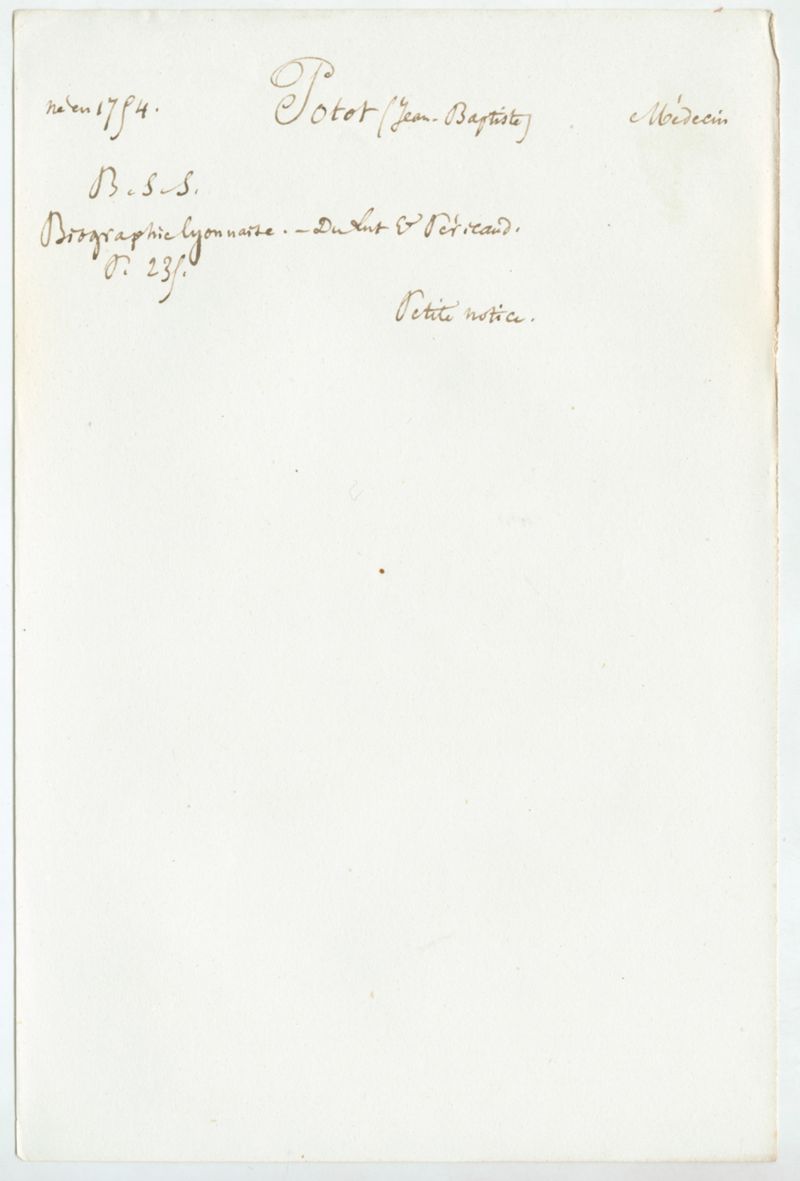 né en 1754. Potot (Jean-Baptiste) Médecin
B. S. S.
Biographie lyonnaise. — Du Lut & Péricaud.
P. 235.
Petite notice.